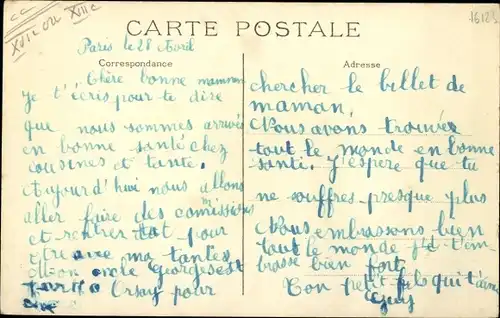 CARTE POSTALE
XVII ou XIII e
16123
Paris le 28 Avril
Correspondance
Chère bonne maman
Je t'écris pour te dire
que nous sommes arrivés
en bonne santé chez
cousines et tante.
Aujourd'hui nous allons
aller faire des comissions
et rentrer tot pour
etre avec ma tante
Mon oncle Georges est
Orsay pour
Adresse
chercher le billet de
maman.
Nous avons trouvés
tout le monde en bonne
santé. J'éspère que tu
ne souffres presque plus
Nous embrassons bien
tout le monde je t'em
brasse bien fort
Ton petit fils qui t'aime
Guy